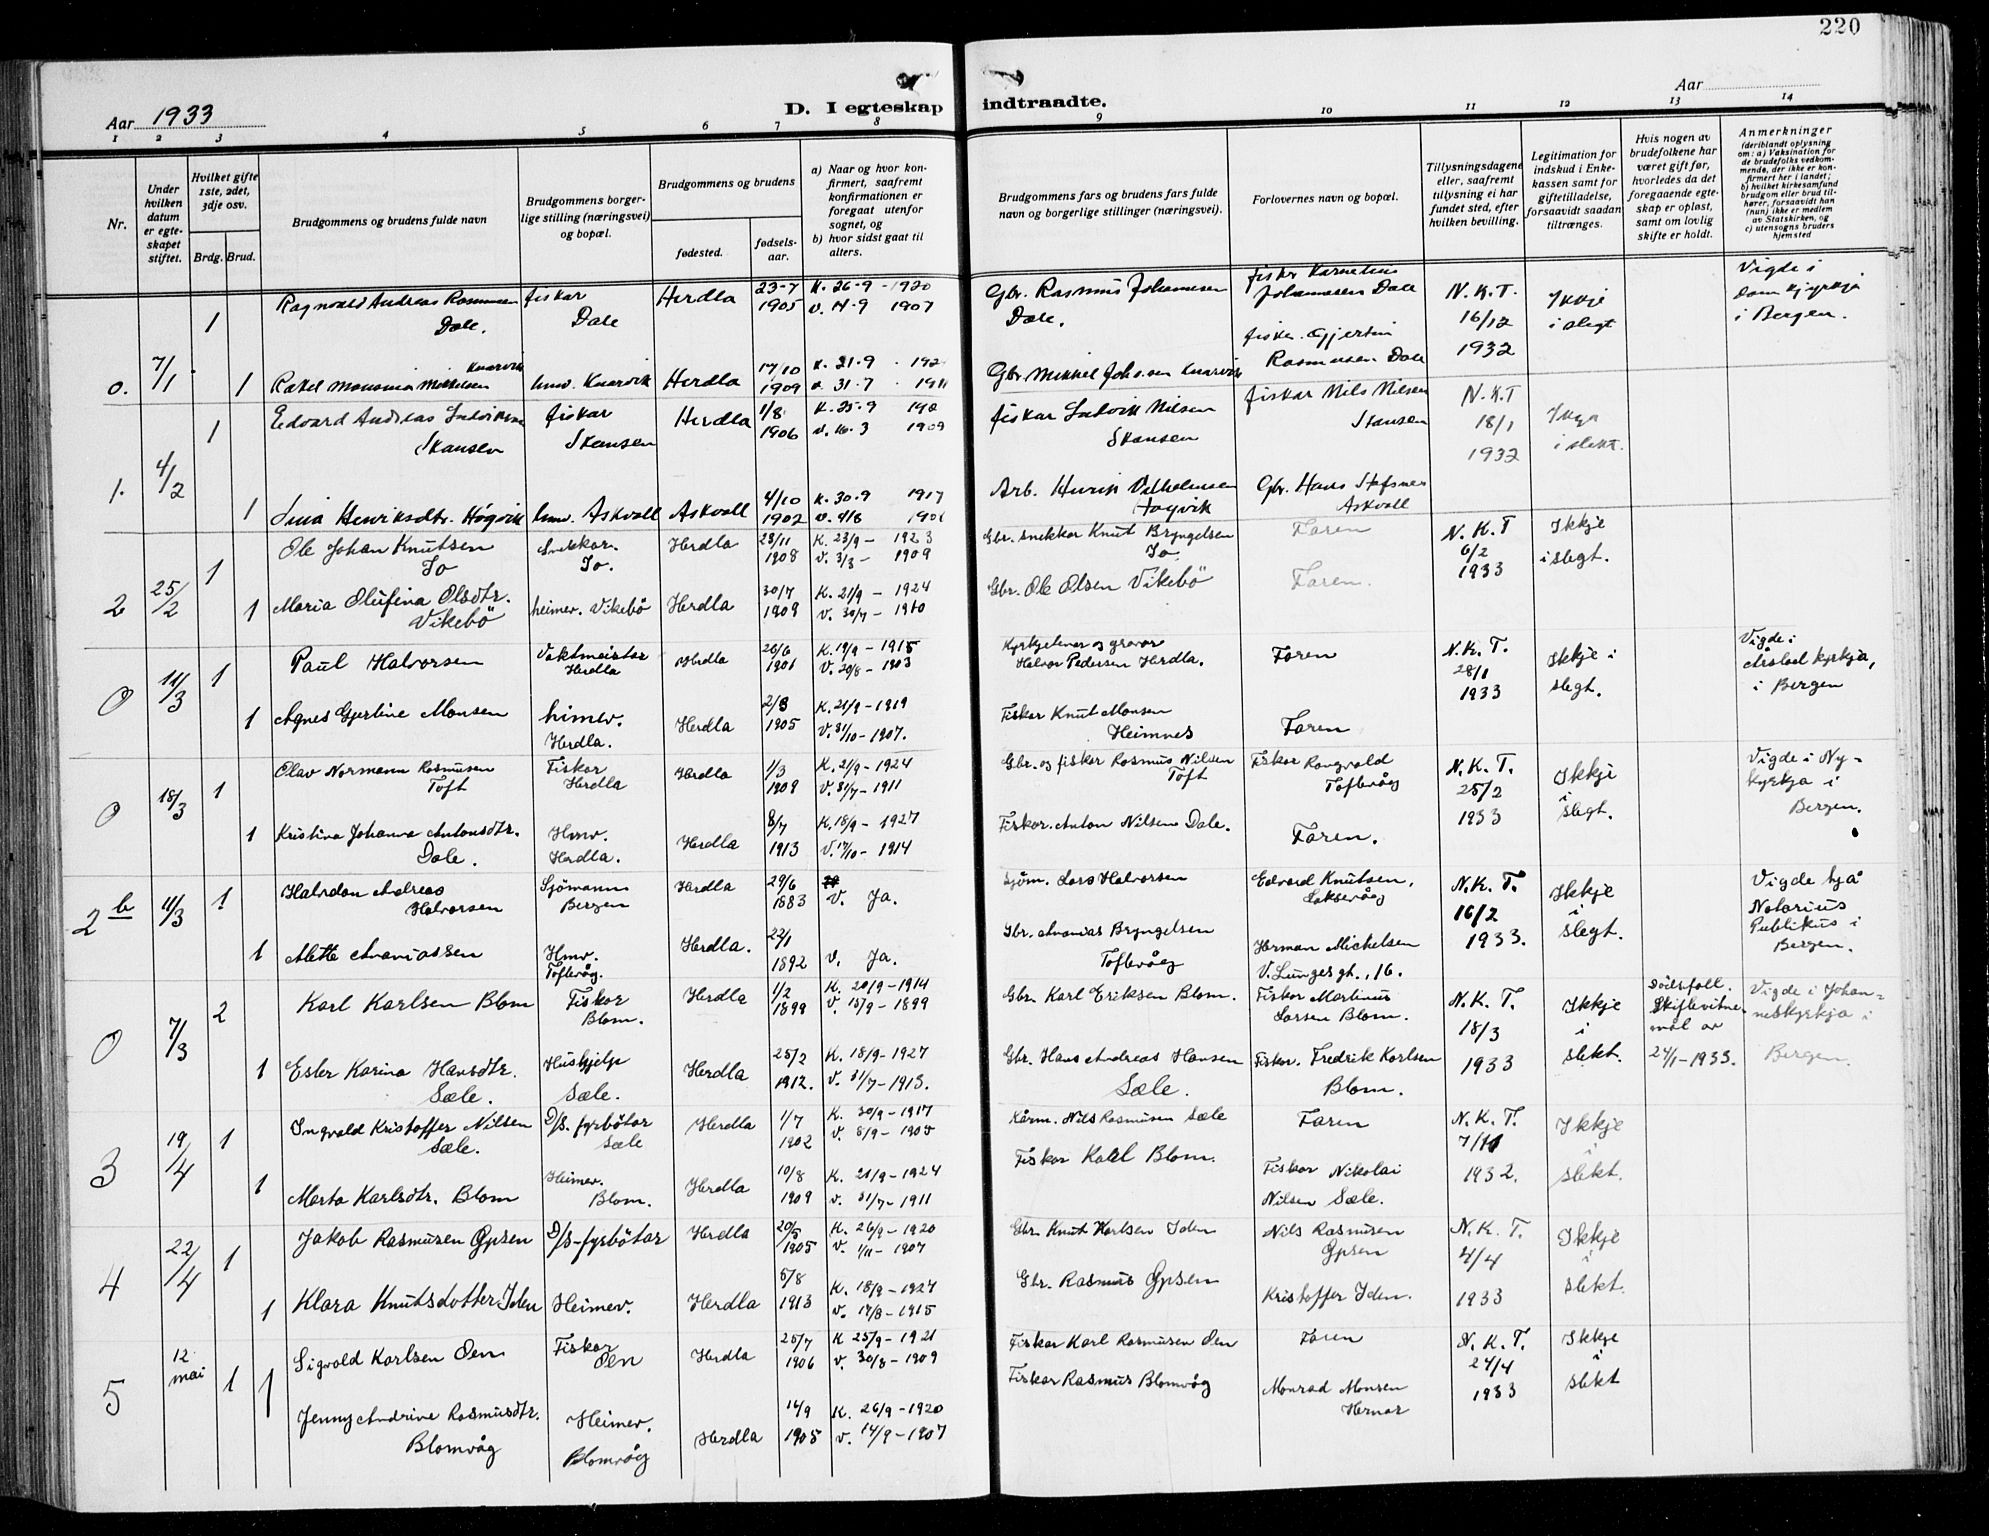 220
Aar 1933
D. I egteskap indtraadte.
Aar
1 2 3 4 5 6 7 8 9 10 11 12 13 14
Nr.
Under hvilken datum er egteskapet stiftet.
Hvilket gifte 1ste, 2det, 3dje osv.
Brdg. Brud.
Brudgommens og brudens fulde navn
Brudgommens borgerlige stilling (næringsvei) og bopæl.
Brudgommens og brudens
fødested.
fødselsaar.
a) Naar og hvor konfirmert, saafremt konfirmationen er foregaat utenfor sognet, og
b) hvor sidst gaat til alters.
Brudgommens fars og brudens fars fulde navn og borgerlige stillinger (næringsvei).
Forlovernes navn og bopæl.
Tillysningsdagene eller, saafremt tillysning ei har fundet sted, efter hvilken bevilling.
Legitimation for indskud i Enkekassen samt for giftetilladelse, forsaavidt saadan tiltrænges.
Hvis nogen av brudefolkene har været gift før, hvorledes da det foregaaende egteskap er opløst, samt om lovlig skifte er holdt.
Anmerkninger
(deriblandt oplysning om: a) Vaksination for de brudefolks vedkommende, der ikke er konfirmert her i landet; b) hvilket kirkesamfund brudgom eller brud tilhører, forsaavidt han (hun) ikke er medlem av Statskirken, og c) utensogns bruders hjemsted
1 Ragnvald Andreas Rasmusen Dale. fiskar Dale Herdla 23-7 1905 K. 26-9-1920 v. 14-9 1907 Gbr. Rasmus Johannesen Dale. fisker Kornelius Johannesen Dale N.K.T. 16/12 1932 Ikkje i slegt Vigde i Domkyrkja i Bergen.
0. 7/1 1 Rakel Monsina Mikkelsen Knarvik hmv. Knarvik Herdla 17/10 1909 K. 21-9 v. 31-7 1911 Gbr. Mikkel Johs.sen Knarvik fisker Gjertin Rasmusen Dale
1 Edvard Andreas Ludviksen Skansen fiskar Skansen Herdla 1/8 1906 K. 25-9 v. 16-3 1909 fiskar Ludvik Nilsen Skansen fiskar Nils Nilsen Skansen N.K.T 18/1 1932 i slekt.
1. 4/2 1 Lina Henriksdtr. Høgvik hmv. Askvoll Askvoll 4/10 1902 K. 30-9 1917 v. 4/8 Arb. Henrik Vilhelmsen Høgvik Gbr. Hans Askvoll
1 Ole Johan Knutsen Io Snekkar. Io. Herdla 28/11 1908 K. 23/9 - 1923 V. 3/3 - 1909 Gbr. snekkar Knut Bryngelsen Io Faren N.K.T 6/2 1933 Ikkje i slegt.
2 25/2 1 Maria Olufina Olsdtr. Vikebö heimev. Vikebö Herdla 30/7 1909 K. 21/9 - 1924 V. 30/7 - 1910 Gbr. Ole Olsen Vikebö Faren.
0 11/3 1 Paul Halvorsen Vaktmeistar Herdla Herdla 26/6 1901 K. 19/9 - 1915 V. 20/8 - 1903 Kyrkjetenar og gravar Halvor Pedersen Herdla. Faren N.K.T. 28/1 1933 Ikkje i slegt. Vigde i Årstad kyrkja, i Bergen
1 Agnes Gjertine Monsen himev. Herdla. Herdla 2/3 1905 K. 21/9 - 1919 V. 31/10 - 1907. Fiskar Knut Monsen Heimnes Faren
0 18/3 1 Olav Normann Rasmusen Toft Fiskar Herdla Herdla 1/3 1909 K. 21/9 - 1924 V. 31/7 - 1911 Gbr. og fisker Rasmus Nilsen Toft Fiskar Rangvald Toftevåg N.K.T. 25/2 1933 Ikkje i slegt. Vigde i Nykyrkja i Bergen.
1 Kristina Johanna Antonsdtr. Dale. Hmv. Herdla. Herdla 8/7 1913 K. 18/9 - 1927 V. 17/10 - 1914 Fiskar. Anton Nilsen Dale. Faren.
2b 11/3 1 Halvdan Andreas Halvorsen Sjömann Bergen Herdla 29/6 1883 V. Ja. Sjöm. Lars Halvorsen Edvard Knutsen, Laksevåg N.K.T. 16/2 1933. Ikkje i slegt. Vigde hjå Notarius Publikus i Bergen.
1 Mette Ananiassen Hmv. Toftevåg. Herdla. 22/1 1892 V. Ja. Gbr. Ananias Bryngelsen Toftevåg Herman Michelsen V. Lunges gt., 16.
0 7/3 2 Karl Karlsen Blom Fiskar Blom. Herdla 1/2 1899 K. 20/9 - 1914 V. 15/9 - 1899 Gbr. Karl Eriksen Blom. Fiskar Martinus Larsen Blom. N.K.T. 18/3 1933 Ikkje i slekt. Dödsfall. Skiftevitnemål av 24/1 - 1933. Vigde i Johanneskyrkja i Bergen.
1 Ester Karina Hansdtr. Sæle. Hushjelp Sæle. Herdla 25/2 1912. K. 18/9 - 1927 V. 31/7 - 1913. Gbr. Hans Andreas Hansen Sæle. Fiskar. Fredrik Karlsen Blom.
3 19/4 1 Ingvald Kristoffer Nilsen Sæle. D/S. fyrbötar Sæle Herdla 1/7 1902 K. 30/9 - 1917 V. 8/9 - 1905 Kårm. Nils Rasmusen Sæle Faren N.K.T. 1932. Ikkje i slekt.
1 Marta Karlsdtr. Blom Heimev. Blom. Herdla 10/8 1909 K. 21/9 - 1924 V. 31/7 - 1911 Fiskar Karl Blom. Fiskar Nikolai Nilsen Sæle.
4 22/4 1 Jakob Rasmusen Gpsen D/S-fyrbötar Herdla 20/5 1905 K. 26/9 - 1920 V. 1/11 - 1907 Gbr. Knut Karlsen Iden Nils Rasmusen Gpsen N.K.T. 4/4 1933 Ikkje i slekt.
1 Klara Knutsdotter Iden Heimev. Herdla 5/8 1913 K. 18/9 - 1927 V. 17/8 - 1915 Gbr. Rasmus Gpsen Kristoffer Iden.
5 12 mai 1 Sigvald Karlsen Oen Fiskar Oen Herdla 25/7 1906 K 25/9 - 1921 V. 30/3 - 1909 Fiskar Karl Rasmusen Oen Faren N.K.T. 24/4 1933 Ikkje i slekt
1 Jenny Andrine Rasmusdtr. Blomvåg Heimev. Blomvåg Herdla 14/9 1905 K. 26/9 - 1920 V. 14/9 - 1907 Fiskar Rasmus Blomvåg Monrad Monsen Hernar